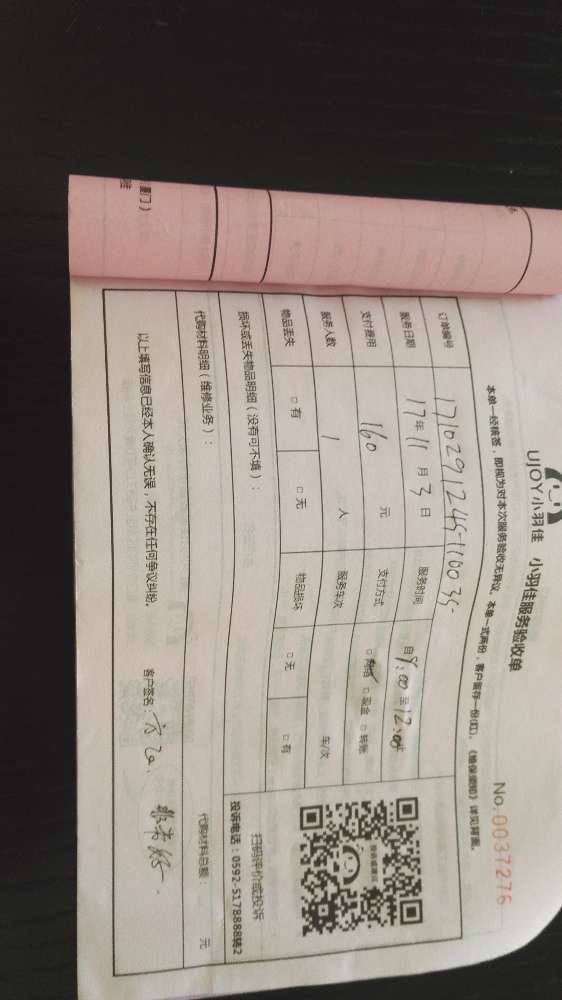 UJOY小羽佳 小羽佳服务验收单
No.0037276
本单一经核签,即视为对本次服务验收无异议。本单一式两份,客户留存一份(红)。《维保须知》详见背面。
订单编号 171029124511003S
服务日期 17年 11月 3日 服务时间 自8:00至12:00止
支付费用 160 元 支付方式 □网络 □现金 □转账
服务人数 1 人 服务车次 车/次
物品丢失 □有 □无 物品损坏 □无 □有
扫码评价或投诉
投诉电话:0592-5178888转2
损坏或丢失物品明细(没有可不填):
代购材料明细(维修业务): 代购材料总额: 元
以上填写信息已经本人确认无误,不存在任何争议纠纷。 客户签名:
厦门)